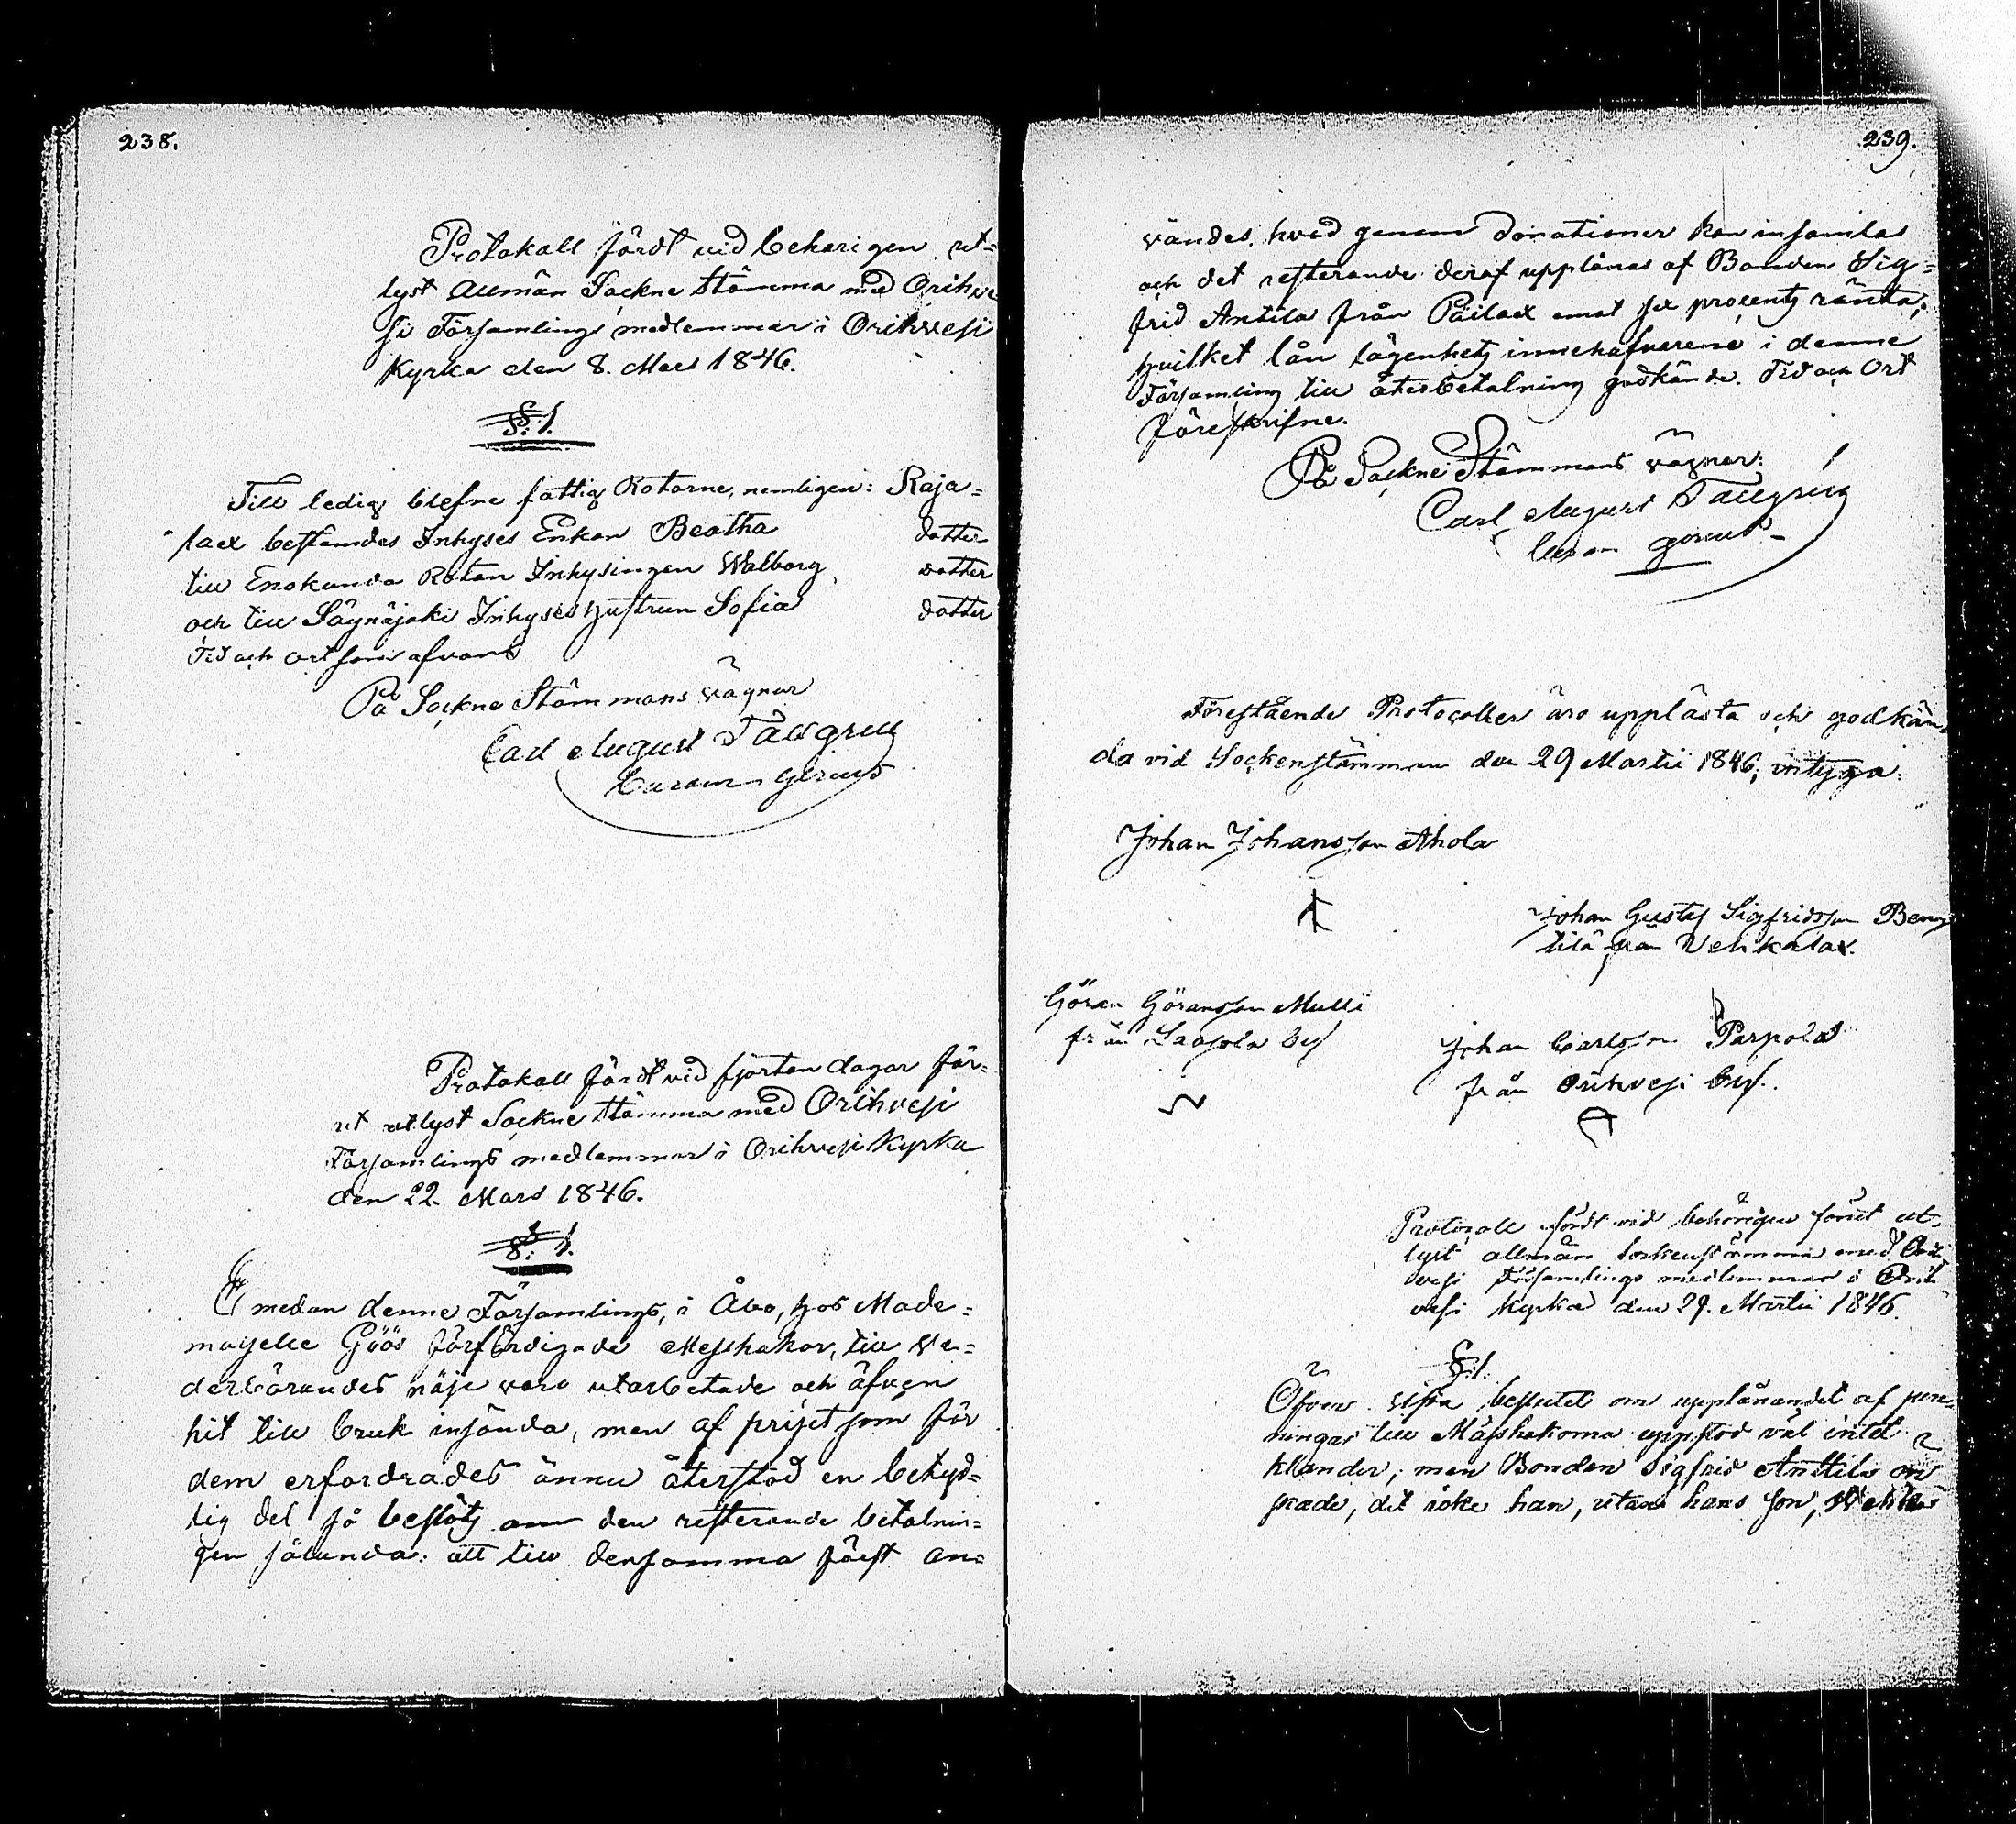 238.
Protokoll fördt vid behörigen ut=
lyst Allmän Sockne Stämma med Orihve
si Församlings medlemmar i Orihvesi
Kyrka den 8. Mars 1846.
§. 1.
Till ledig blefne fattig Rotarne, nemligen: Raja=
lax bestämdes Inhyses Enkan Beatha dotter
till Enokunda Rotan Inhysingen Walborg dotter
och till Säynäjoki Inhyses hustrun Sofia dotter
Tid och ort som ofvans
På Sockne Stämmans vägnar
Carl August Tallgren
gerens
Protokoll fördt vid fjorton dagar för=
ut utlyst Sockne Stämma med Orihvesi
Församlings medlemmar i Orihvesi Kyrka
den 22. Mars 1846.
§. 1.
Emedan denne Församlings, i Åbo, hos Made=
moiselle Göös förfärdigade Messhakar, till ve=
derbörandes nöje voro utarbetade och äfven
hit till bruk insända, men af priset som för
dem erfordrades ännu återstod en betyd=
lig del, så beslöts om den resterande betalnin=
gen sålunda: att till densamma först an=
239.
vändes, hvad genom donationer kan insamlas
och det resterande deraf upplånas af Bonden Sig=
frid Antila från Päilax emot sex procents ränta,
hvilket lån lägenhets innehafvarene i denne
Församling till återbetalning godkände. Tid och Ort
föreskrifne.
På Sockne Stämmans vägnar:
Carl August Tallgren
gerens
Förestående Protocoller äro upplästa och godkän
da vid Sockenstämman den 29 Martii 1846; intyga:
Johan Johansson Ahola
Johan Gustaf Sigfridsson Beng
tilä från Vehkalax.
Göran Göransson Mulli
från by
Johan Carlsson Parpola
från Orihvesi by.
Protocoll fördt vid behörigen förut ut=
lyst allmän sockenstämma med Ori
vesi Församlings medlemmar i Orih
vesi Kyrka den 29. Martii 1846.
§. 1.
Öfver sista beslutet om upplånandet af pen=
ningar till Mässhakarna uppstod väl intet
klander; men Bonden Sigfrid Anttila ön
skade, det icke han, utan hans son,